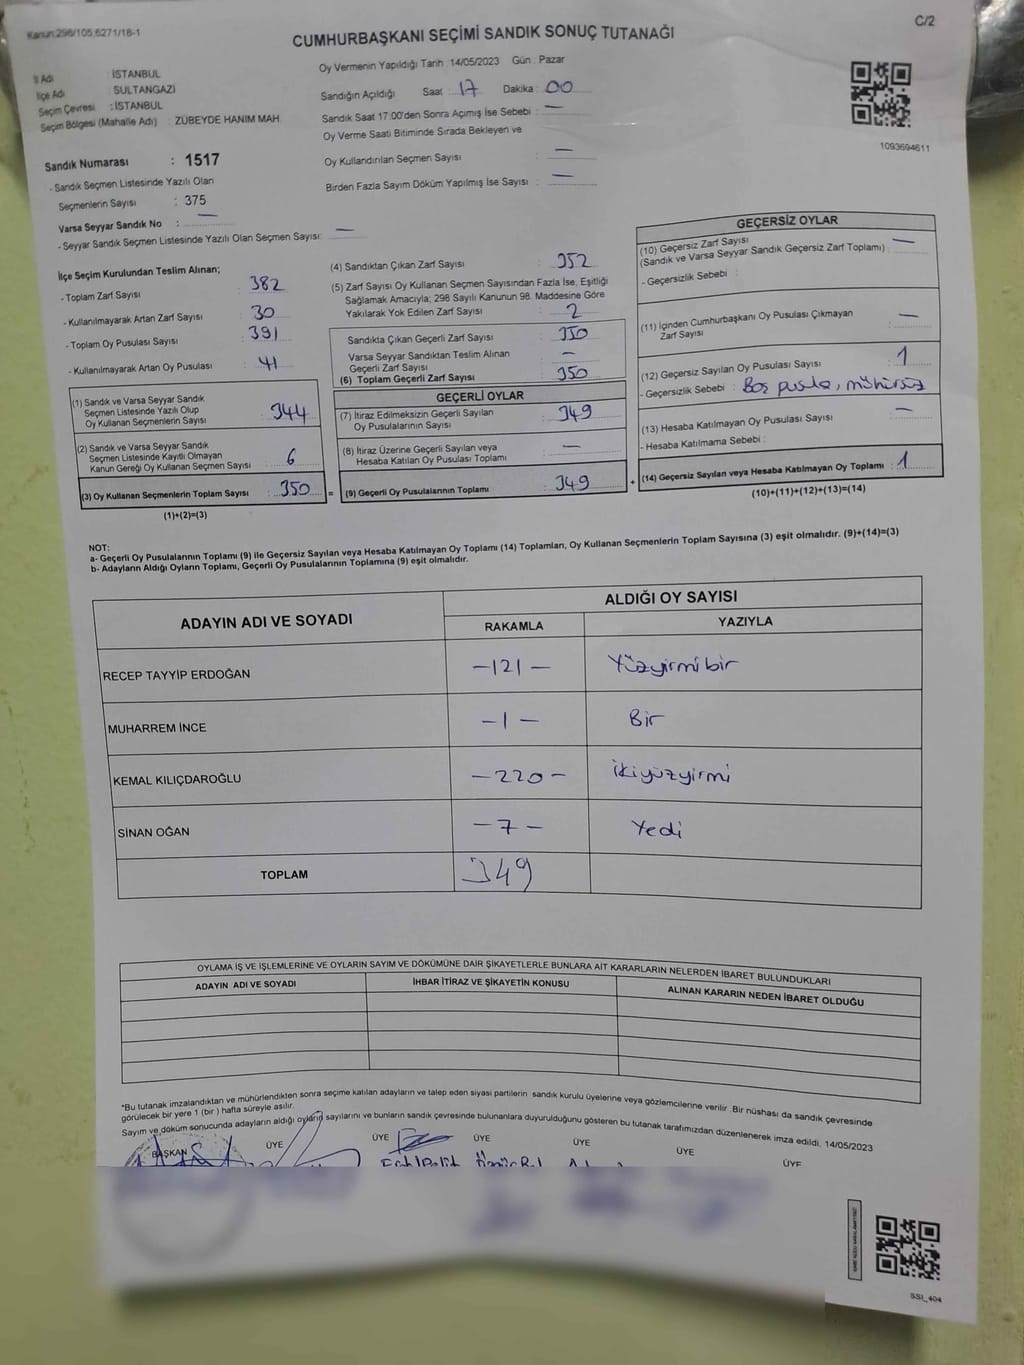 Kanun:298/105,6271/18-1
C/2
CUMHURBAŞKANI SEÇİMİ SANDIK SONUÇ TUTANAĞI
İl Adı : İSTANBUL
İlçe Adı : SULTANGAZİ
Seçim Çevresi : İSTANBUL
Seçim Bölgesi (Mahalle Adı) : ZÜBEYDE HANIM MAH.
Sandık Numarası : 1517
- Sandık Seçmen Listesinde Yazılı Olan
Seçmenlerin Sayısı : 375
Varsa Seyyar Sandık No : —
- Seyyar Sandık Seçmen Listesinde Yazılı Olan Seçmen Sayısı: —
Oy Vermenin Yapıldığı Tarih : 14/05/2023 Gün : Pazar
Sandığın Açıldığı Saat : 17 Dakika : 00
Sandık Saat 17:00'den Sonra Açımış İse Sebebi : —
Oy Verme Saati Bitiminde Sırada Bekleyen ve
Oy Kullandırılan Seçmen Sayısı : —
Birden Fazla Sayım Döküm Yapılmış İse Sayısı : —
1093694611
İlçe Seçim Kurulundan Teslim Alınan;
- Toplam Zarf Sayısı : 382
- Kullanılmayarak Artan Zarf Sayısı : 30
- Toplam Oy Pusulası Sayısı : 391
- Kullanılmayarak Artan Oy Pusulası : 41
(1) Sandık ve Varsa Seyyar Sandık
Seçmen Listesinde Yazılı Olup
Oy Kullanan Seçmenlerin Sayısı : 344
(2) Sandık ve Varsa Seyyar Sandık
Seçmen Listesinde Kayıtlı Olmayan
Kanun Gereği Oy Kullanan Seçmen Sayısı : 6
(3) Oy Kullanan Seçmenlerin Toplam Sayısı : 350 =
(1)+(2)=(3)
(4) Sandıktan Çıkan Zarf Sayısı : 352
(5) Zarf Sayısı Oy Kullanan Seçmen Sayısından Fazla İse, Eşitliği
Sağlamak Amacıyla; 298 Sayılı Kanunun 98. Maddesine Göre
Yakılarak Yok Edilen Zarf Sayısı : 2
Sandıkta Çıkan Geçerli Zarf Sayısı : 350
Varsa Seyyar Sandıktan Teslim Alınan
Geçerli Zarf Sayısı : —
(6) Toplam Geçerli Zarf Sayısı : 350
GEÇERLİ OYLAR
(7) İtiraz Edilmeksizin Geçerli Sayılan
Oy Pusulalarının Sayısı : 349
(8) İtiraz Üzerine Geçerli Sayılan veya
Hesaba Katılan Oy Pusulası Toplamı : —
(9) Geçerli Oy Pusulalarının Toplamı : 349 +
GEÇERSİZ OYLAR
(10) Geçersiz Zarf Sayısı
(Sandık ve Varsa Seyyar Sandık Geçersiz Zarf Toplamı) : —
- Geçersizlik Sebebi :
(11) İçinden Cumhurbaşkanı Oy Pusulası Çıkmayan
Zarf Sayısı : —
(12) Geçersiz Sayılan Oy Pusulası Sayısı : 1
- Geçersizlik Sebebi : Boş pusula, mühürsüz
(13) Hesaba Katılmayan Oy Pusulası Sayısı : —
- Hesaba Katılmama Sebebi :
(14) Geçersiz Sayılan veya Hesaba Katılmayan Oy Toplamı : 1
(10)+(11)+(12)+(13)=(14)
NOT:
a- Geçerli Oy Pusulalarının Toplamı (9) ile Geçersiz Sayılan veya Hesaba Katılmayan Oy Toplamı (14) Toplamları, Oy Kullanan Seçmenlerin Toplam Sayısına (3) eşit olmalıdır. (9)+(14)=(3)
b- Adayların Aldığı Oyların Toplamı, Geçerli Oy Pusulalarının Toplamına (9) eşit olmalıdır.
ADAYIN ADI VE SOYADI ALDIĞI OY SAYISI
RAKAMLA YAZIYLA
RECEP TAYYİP ERDOĞAN -121- Yüzyirmibir
MUHARREM İNCE -1- Bir
KEMAL KILIÇDAROĞLU -220- ikiyüzyirmi
SİNAN OĞAN -7- Yedi
TOPLAM 349
OYLAMA İŞ VE İŞLEMLERİNE VE OYLARIN SAYIM VE DÖKÜMÜNE DAİR ŞİKAYETLERLE BUNLARA AİT KARARLARIN NELERDEN İBARET BULUNDUKLARI
ADAYIN ADI VE SOYADI İHBAR İTİRAZ VE ŞİKAYETİN KONUSU ALINAN KARARIN NEDEN İBARET OLDUĞU
*Bu tutanak imzalandıktan ve mühürlendikten sonra seçime katılan adayların ve talep eden siyasi partilerin sandık kurulu üyelerine veya gözlemcilerine verilir .Bir nüshası da sandık çevresinde
görülecek bir yere 1 (bir ) hafta süreyle asılır.
Sayım ve döküm sonucunda adayların aldığı oyların sayılarını ve bunların sandık çevresinde bulunanlara duyurulduğunu gösteren bu tutanak tarafımızdan düzenlenerek imza edildi, 14/05/2023
BAŞKAN ÜYE ÜYE ÜYE ÜYE ÜYE ÜYE
SSI_404